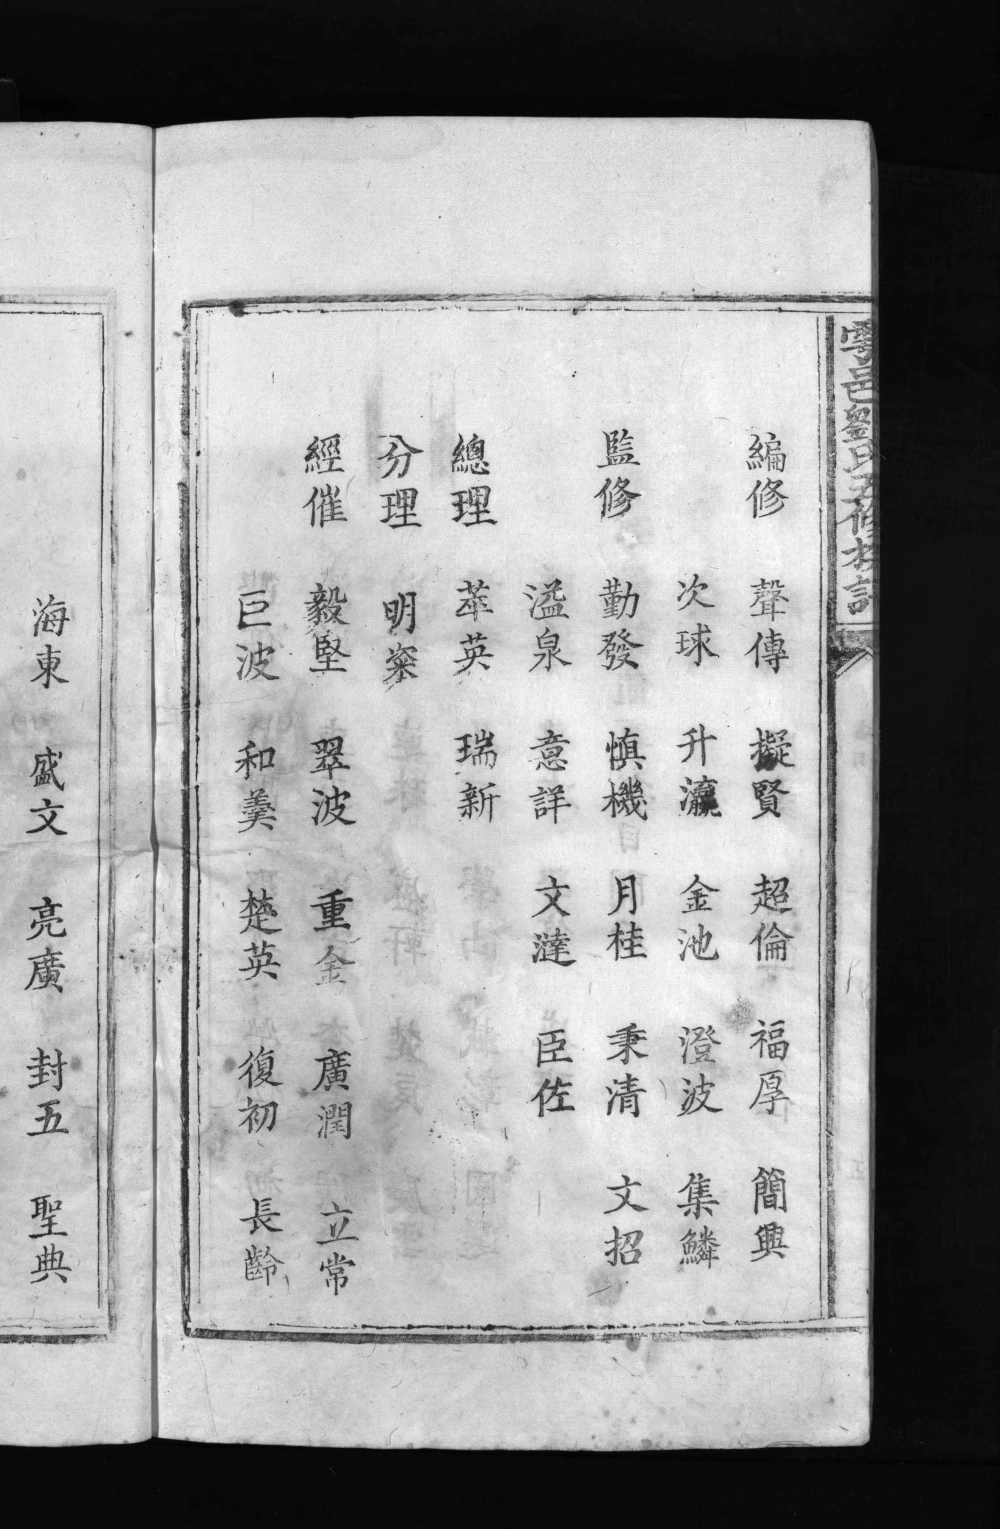 寧邑劉氏五修族譜
編修 聲傳 擬賢 超倫 福厚 簡興
次球 升瀛 金池 澄波 集鱗
監修 勤發 慎機 月桂 秉清 文招
溢泉 意詳 文達 臣佐
總理 萃英 瑞新
分理 明粢
經催 毅堅 翠波 重金 廣潤 立常
巨波 和羹 楚英 復初 長齡
海東 盛文 亮廣 封五 聖典